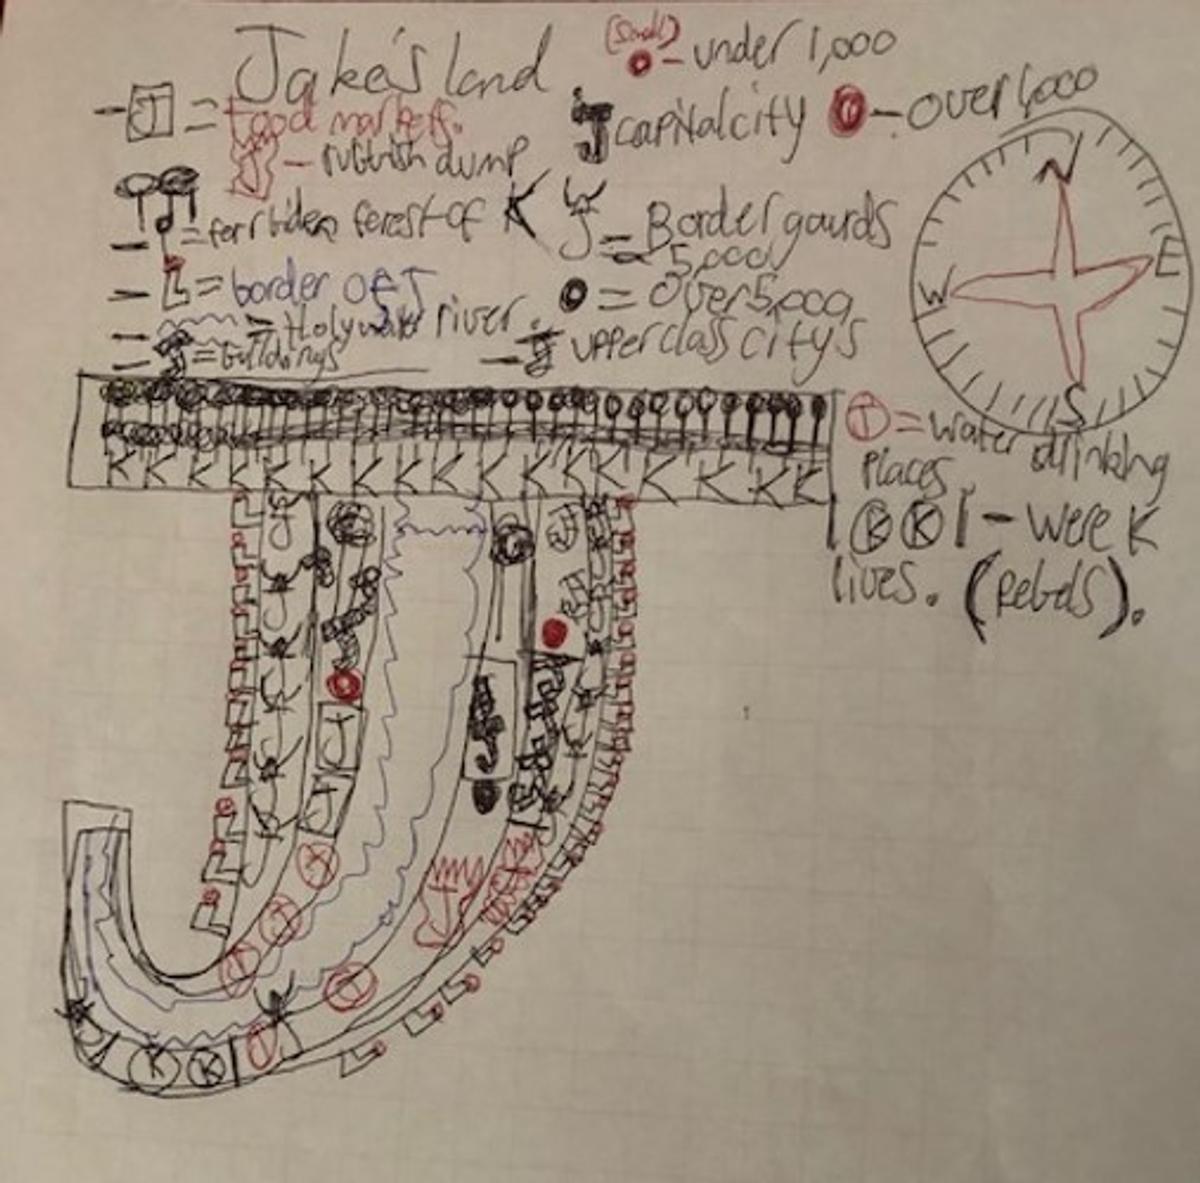 Jake's land
(Small) - under 1,000
J = food markets.
J capital city
- over 1,000
J - rubbish dump
= ferrbiden ferest of K
J = Border gourds
5,000
L = border of J
= over 5,000
= Holy water river.
= buildings
- J upper class city's
N
E
S
W
J = water drinking
places
K K K K K K K K K K K K K K K K K
K K - Were K
lives. (Rebels).
J
J
J
J
J
J
K K J